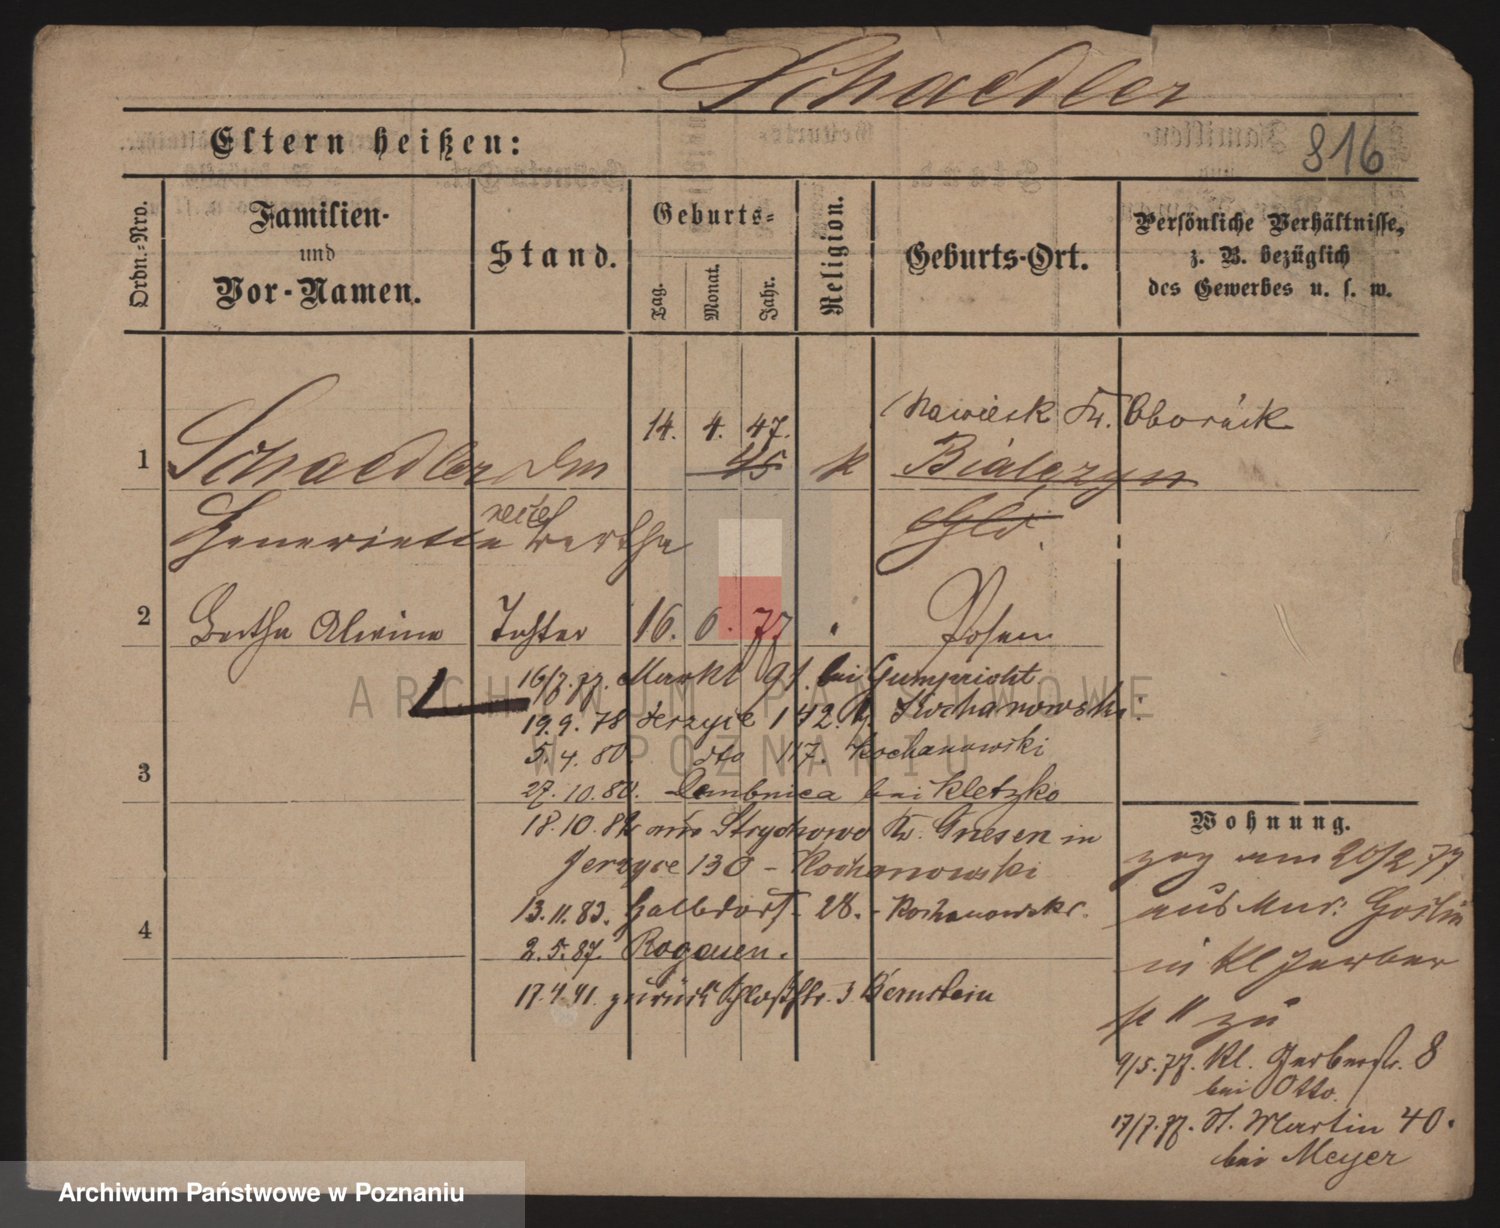 Schaedler
816
Eltern heißen:
Ordn.-Nro.
Familien-
und
Vor-Namen.
Stand.
Geburts-
Tag.
Monat.
Jahr.
Religion.
Geburts-Ort.
Persönliche Verhältnisse,
z. B. bezüglich
des Gewerbes u. s. w.
14. 4. 47. Kr. Obornick
1 Schaedler 45 k Bialczyn
Henriette Bertha
2 Bertha Alwine Tochter 16. 6. 77 " Posen
16/7. 77. Markt 91. bei Gumpricht
19. 9. 78 Jerzyce 142. b. Kochanowski
5. 4. 80. dto 117. Kochanowski
3
27. 10. 80. Dembnica bei Kletzko
18. 10. 82 aus Strychowo Kr. Gnesen in
Jerzyce 130 - Kochanowski
13. 11. 83. Halbdorf- 28. - Kochanowski.
4
2. 5. 87. Rogasen.
17. 4. 91. zurück Schloßstr. 3 Bernstein
Wohnung.
zog am 20/2 77
aus Mur: Goslin
in Kl Gerber
zu
9/5. 77. Kl. Gerberstr. 8
bei Otto.
17/7. 77. St. Martin 40.
bei Meyer
ARCHIWUM PAŃSTWOWE
W POZNANIU
Archiwum Państwowe w Poznaniu